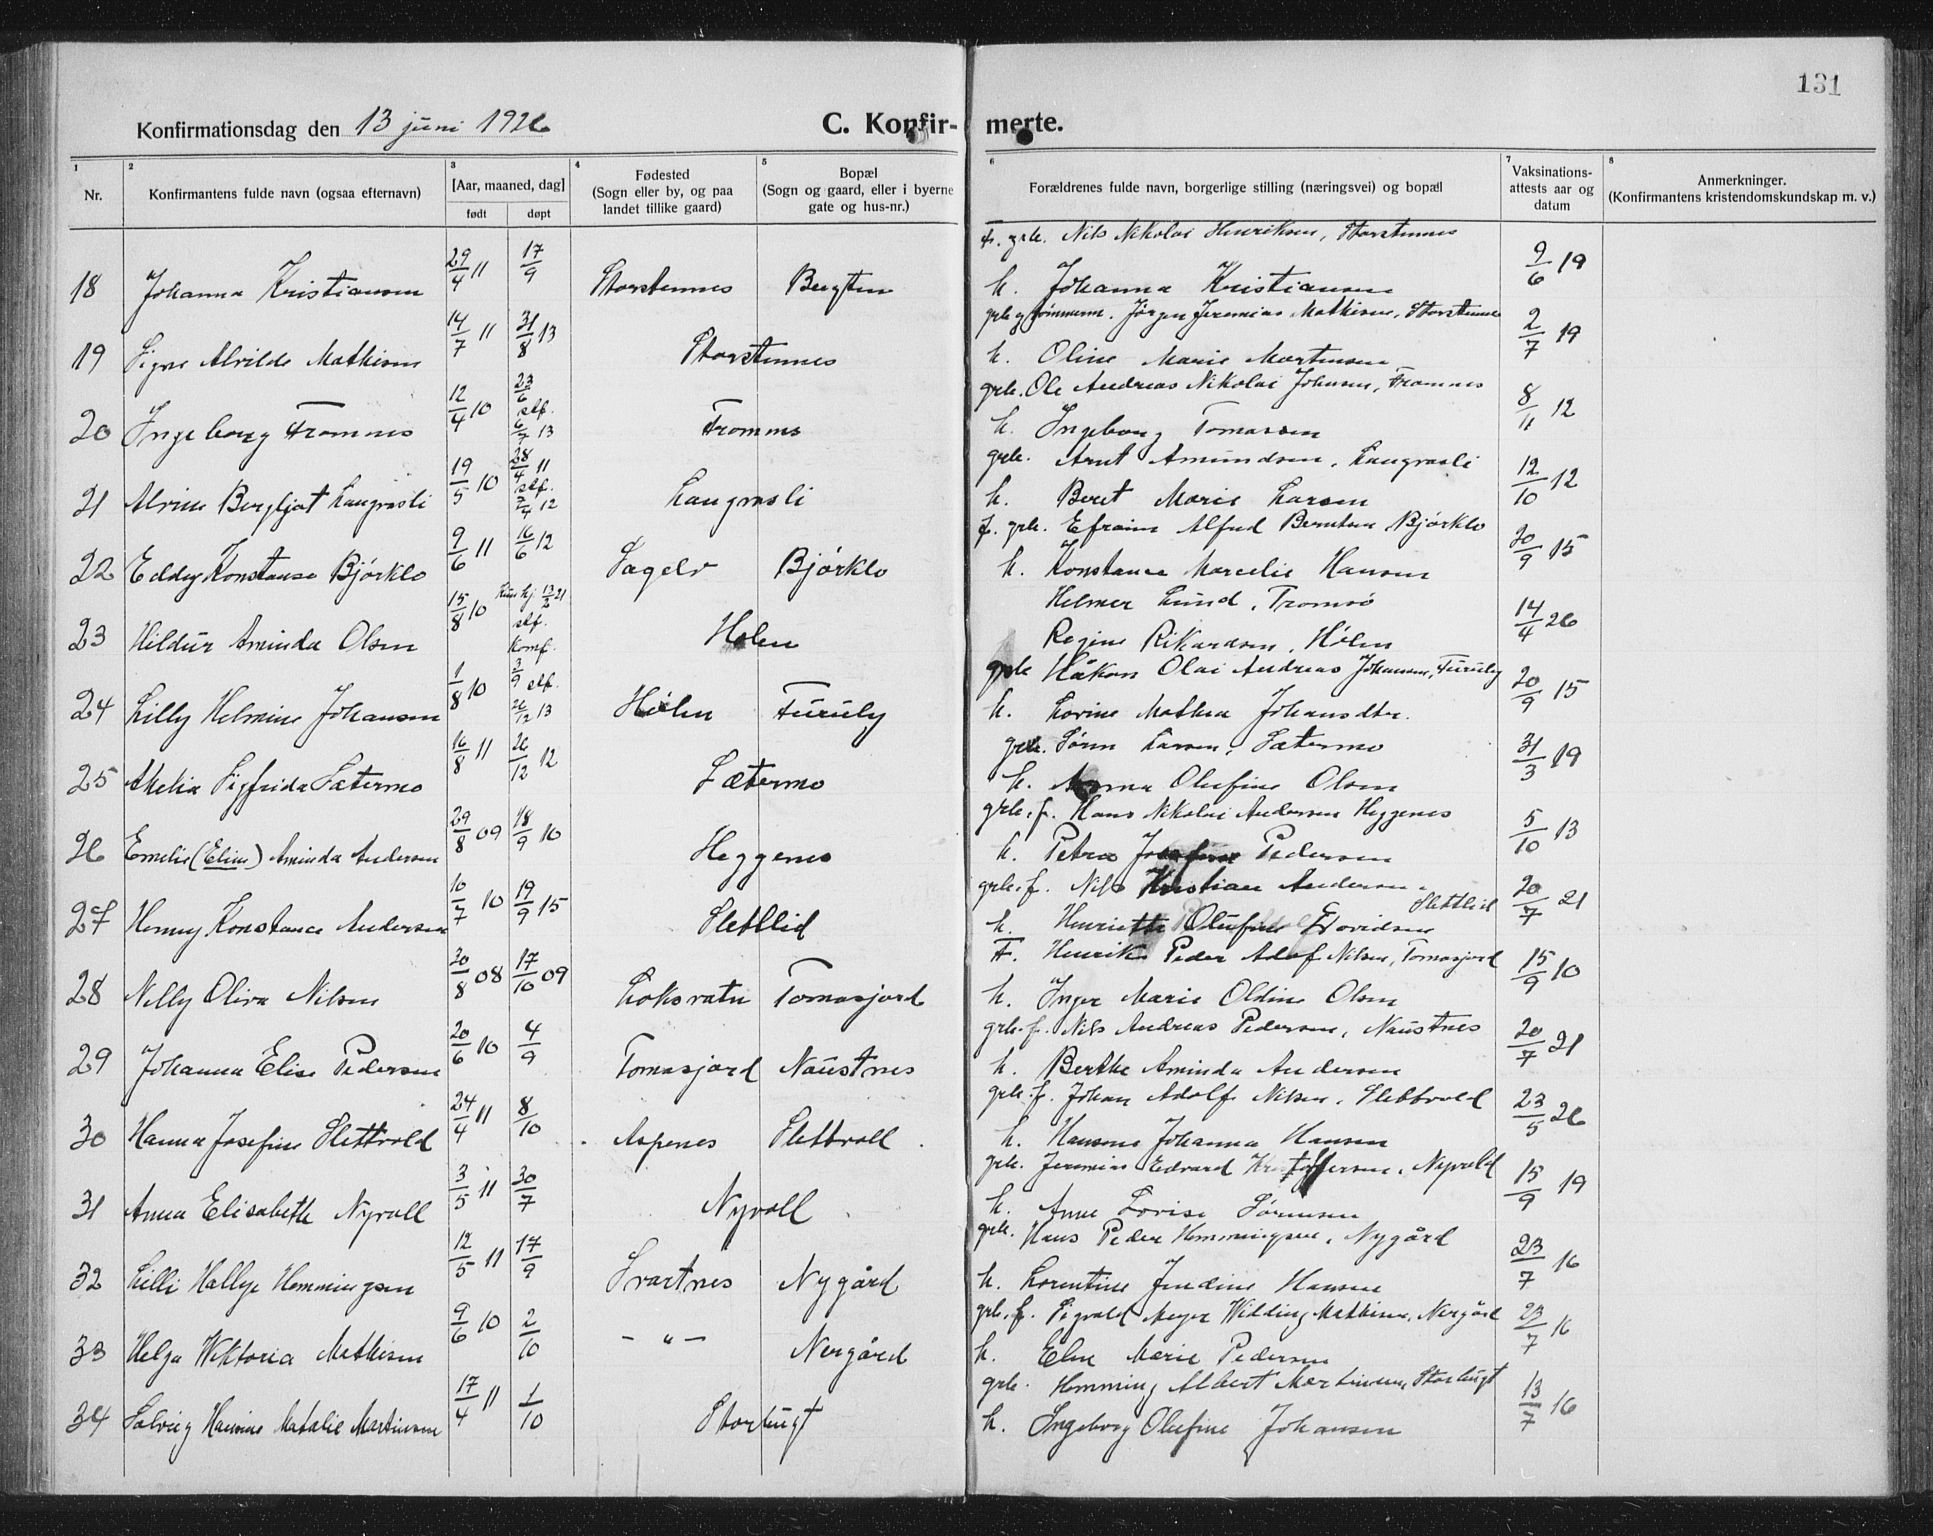 131
Konfirmationsdag den 13 juni 1926 C. Konfir- merte.
1 2 3 4 5 6 7 8
Nr. Konfirmantens fulde navn (ogsaa efternavn) [Aar, maaned, dag] født døpt Fødested (Sogn eller by, og paa landet tillike gaard) Bopæl (Sogn og gaard, eller i byerne gate og hus-nr.) Forældrenes fulde navn, borgerlige stilling (næringsvei) og bopæl Vaksinations-attests aar og datum Anmerkninger. (Konfirmantens kristendomskundskap m. v.)
F. grb. Nils Nikolai Henriksen, Storstennes
18 Johanna Kristiansen 29/4 11 17/9 Storstennes Bergten h. Johanna Kristiansen 9/6 19
Jørgen Jeremias Mathisen, Storstennes
19 Signe Alvilde Mathisen 14/7 11 31/8 13 Storstennes h. Oline Marie Martinsen 2/7 19
grb. Ole Andreas Nikolai Johnsen, Fromnes
20 Ingeborg Fromnes 12/4 10 23/6 stf. 6/7 13 Fromnes h. Ingeborg Tomassen 8/11 12
grb. Arnt Amundsen, Langrasli
21 Alvine Bergljot Langrasli 19/5 10 28/4 11 stf. 7/4 12 Langrasli h. Beret Marie Larsen 12/10 12
f. grb. Efraim Alfred Berntsen Bjørklo
22 Eddy Konstanse Bjørklo 9/6 11 16/6 12 Sagelv Bjørklo h. Konstance Marcelie Hansen 20/9 15
Helmer Lund, Tromsø
23 Hildur Aminda Olsen 15/8 10 21 stf. Komf. Holen Regine Rikardsen, Hølen 14/4 26
grb. Håkon Olai Andreas Johansen, Furuly
24 Lilly Helmine Johansen 1/8 10 3/9 stf. 26/12 13 Hølen Furuly h. Lovine Mathea Johansdtr. 20/9 15
grb. Sørn Larsen, Sætermo
25 Amelia Sigfrida Sætermo 16/8 11 26/12 12 Sætermo h. Olufine Olsen 31/3 19
grb. f. Hans Nikolai Andersen Heggenes
26 Emelie (Eline) Aminda Andersen 29/8 09 18/9 10 Heggenes h. Petra Josefine Pedersen 5/10 13
grb. f. Nils Kristian Andersen. Slettlid
27 Henny Konstance Andersen 10/7 10 19/9 15 Slettlid h. Henriette Olufine Davidsen 20/7 21
F. Henrik Peder Adolf Nilsen, Tomasjord
28 Nelly Oliva Nilsen 20/8 08 17/10 09 Loksvatn Tomasjord h. Inger Marie Oldine Olsen 15/9 10
grb. f. Nils Andreas Pedersen, Naustnes
29 Johanna Elise Pedersen 20/6 10 4/9 Tomasjord Naustnes h. Berthe Aminda Andersen 20/7 21
grb. f. Johan Adolf Nilsen, Slettvold
30 Hanna Josefine Slettvold 24/4 11 8/10 Aspenes Slettvoll h. Hansine Johanna Hansen 23/5 26
grb. Jeremias Edvard Kristoffersen, Nyvold
31 Anna Elisabeth Nyvoll 3/5 11 30/7 Nyvoll h. Anne Lovise Sørensen 15/9 19
grb. Hans Peder Hemmingsen, Nygård
32 Lilli Hallye Hemmingsen 12/5 11 17/9 Svartnes Nygård h. Lorentine Jendine Hansen 23/7 16
grb. f. Sigvald Meyer Wilding Mathisen, Nergård
33 Helga Viktoria Mathisen 9/6 10 2/10 - " - Nergård h. Eline Marie Pedersen 23/7 16
grb. Hemming Albert Martinsen, Storbugt
34 Solveig Hansine Natalie Martinsen 17/4 11 1/10 Storbugt h. Ingeborg Olufine Johansen 13/7 16